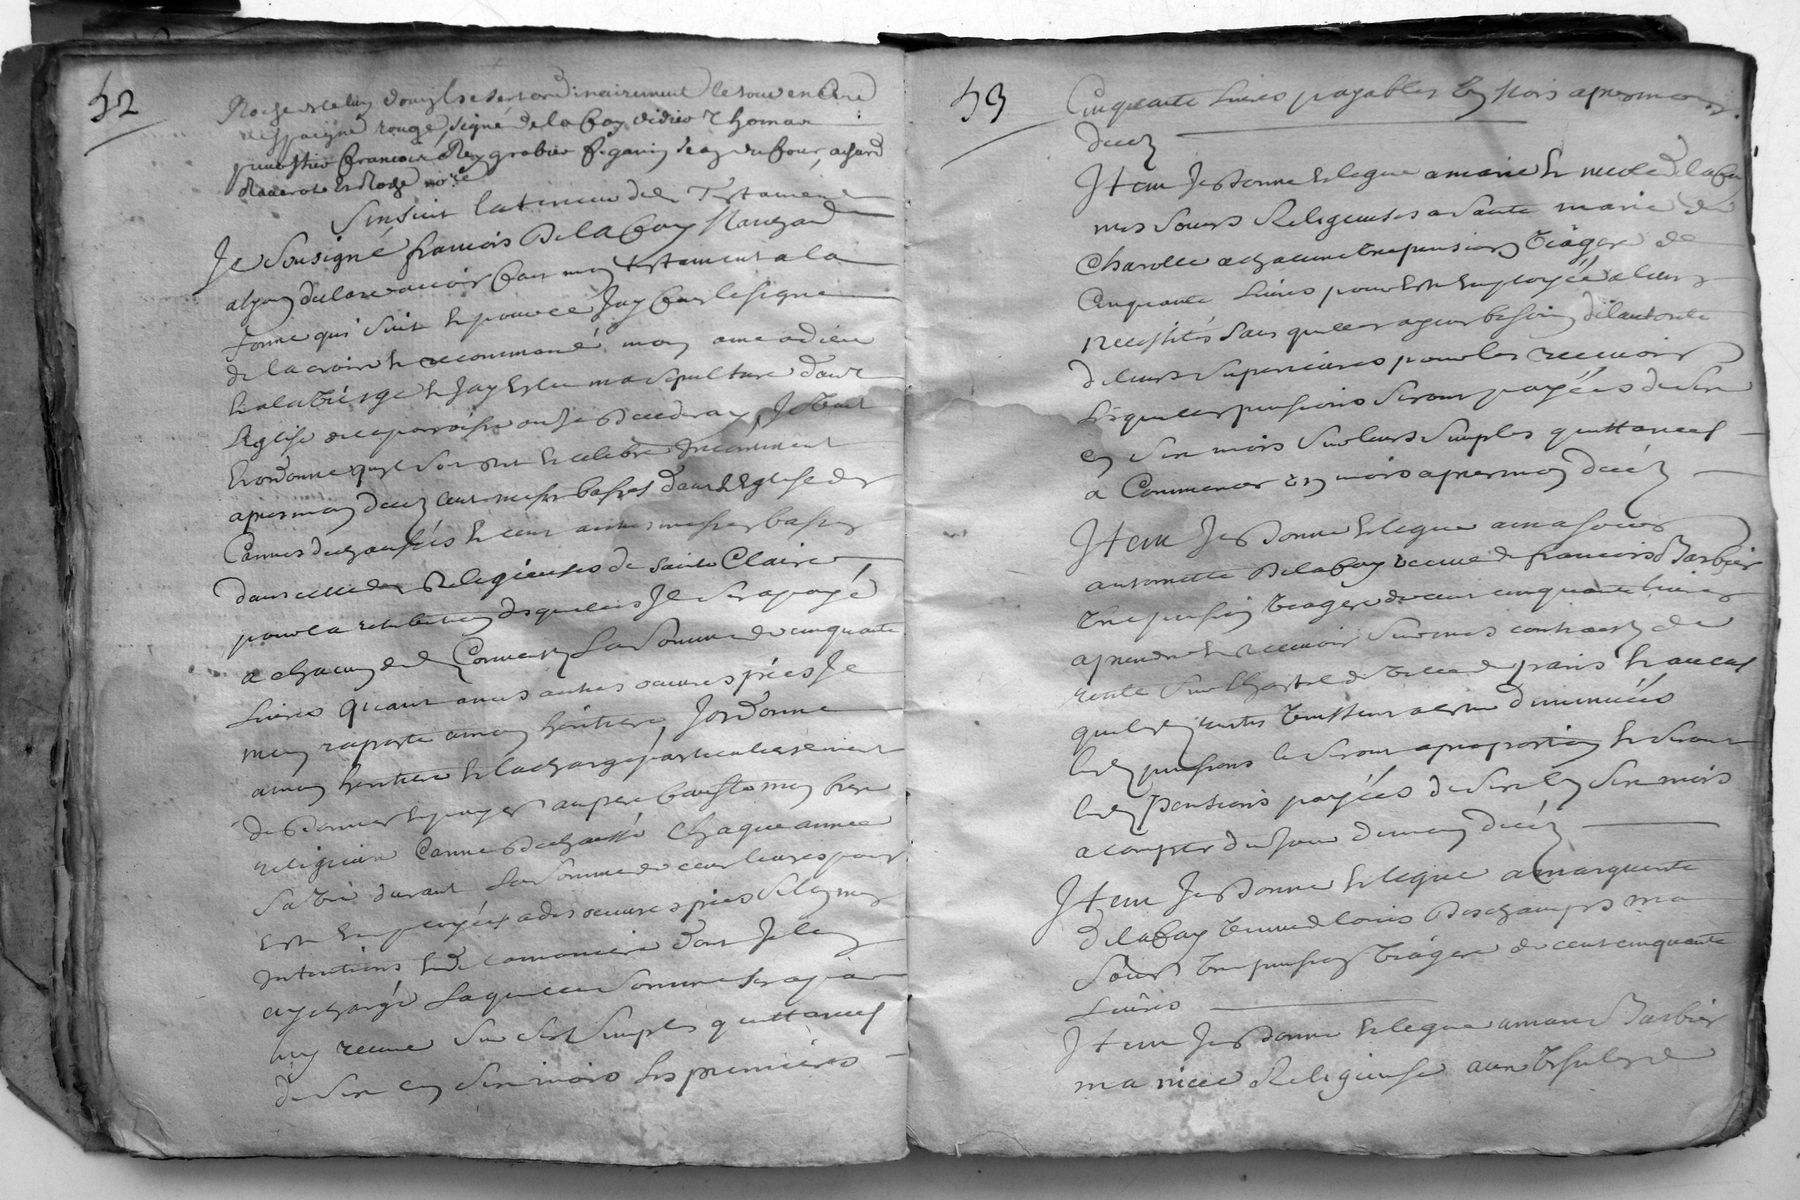 52
Roche et celuy donyl se sert ordinairement le tout en Cire
despagne rouge, signé delafay didier Thomas
francois Rey grobier figanis dufour, achard
Roche nore
Sensuit la teneur dud Testament
Je Sousigné francois Delafay Mauzard
alyon declare avoir fait mon testament a la
forme qui suit et pour ce Jay fait le signe
de la croix et recommandé mon ame a dieu
et a la Vierge et Jay Esleu ma sepulture dans
leglise de la parroisse ou Je decederay, Je Veut
et ordonne qu'il soit dit et celebré Incessament
apres mon decez cent messes basses dans l'Eglise des
Carmes dechaussés et cent autres messes basses
dans celle des Religieuses de Sainte Claire,
pour la retribution desquelles Il sera payé
a chacun desd Couvents La Somme de cinquante
Livres quant a mes autres oeuvres piées Je
men raporte a mon heritier, Jordonne
a mon heritier et la charge particulierement
de donner et payer au pere fauste mon frere
religieux Carme Dechaussé chaque année
sa vie durant La Somme de cent livres pour
estre Employée a des oeuvres piées selon mes
Intentions et de la maniere dont Je len
ay chargé Laquelle Somme sera par
luy receue sur ses simples quittances
de six en six mois les premieres
53
Cinquante Livres payables un mois apres mon
decez
Item Je donne et legue a marie et nicole delafay
mes soeurs Religieuses a Sainte marie de
Charolle a chacune une pension Viagere de
Cinquante Livres pour estre Employée a leurs
necessités sans quelles ayent besoin de lautorité
de leurs superieures pour les recevoir
Lesquelles pensions seront payées de six
en six mois sur leurs simples quittances
a Commencer un mois apres mon decéz
Item Je donne et legue a ma soeur
antoinette Delafay veuve de francois Barbier
une pension Viagere de cent cinquante livres
a prendre et recevoir sur mes contracts de
rente sur lhostel de Ville de paris et au cas
que lesd rentes vinssent a estre diminuées
lesd pensions le seront a proportion et seront
lesd Pensions payées de six en six mois
a compter du jour de mon decéz
Item Je donne et legue a marguerite
delafay veuve de louis Deschamps ma
soeur une pension Viagere de cent cinquante
Livres
Item Je donne et legue a marie Barbier
ma niece Religieuse aux Vrsules de